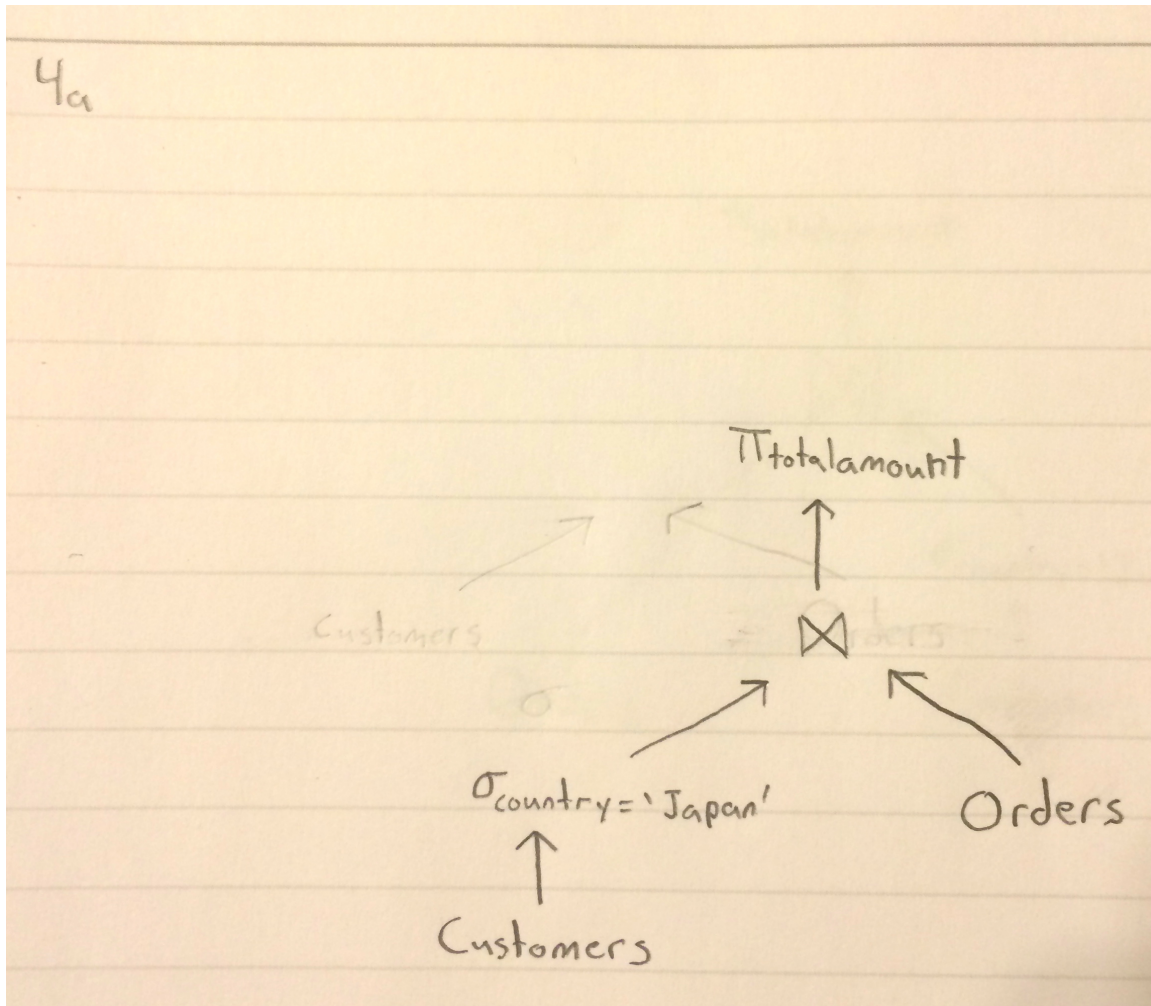 4a
πtotalamount
Customers Orders
⋈
σ
σcountry='Japan' Orders
Customers